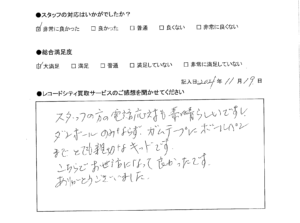 ●スタッフの対応はいかがでしたか？
☑ 非常に良かった □ 良かった □ 普通 □ 良くない □ 非常に良くない
●総合満足度
☑ 大満足 □ 満足 □ 普通 □ 満足していない □ 非常に満足していない
記入日 2021年 11月 19日
●レコードシティ買取サービスのご感想を聞かせてください
スタッフの方の電話応対も素晴らしいですし、
ダンボールのみならず、ガムテープにボールペン
まで と 親切なキットです。
こちらでお世話になって良かったです。
ありがとうございました。